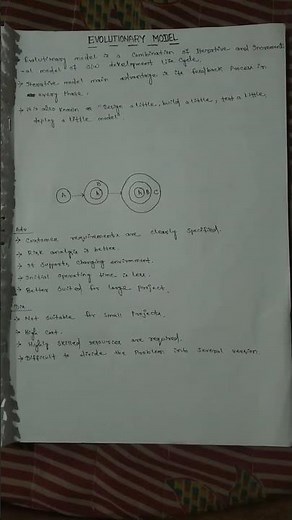 EVOLUTIONARY MODEL
Evolutionary model is a Combination of Iterative and Incremen-
tal model of S/w development Life Cycle.
→ Iterative model main advantage is its feedback Process in
every Phase.
→ It is also known as "Design a little, build a little, test a little,
deploy a little model"
A B A A B C
Adv
→ Customer requirements are clearly specified.
→ Risk analysis is better.
→ It supports changing environment.
→ Initial operating time is less.
→ Better Suited for large Project.
→ Not suitable for small Projects.
→ High Cost.
→ Highly skilled resources are required.
→ Difficult to divide the Problem into several version